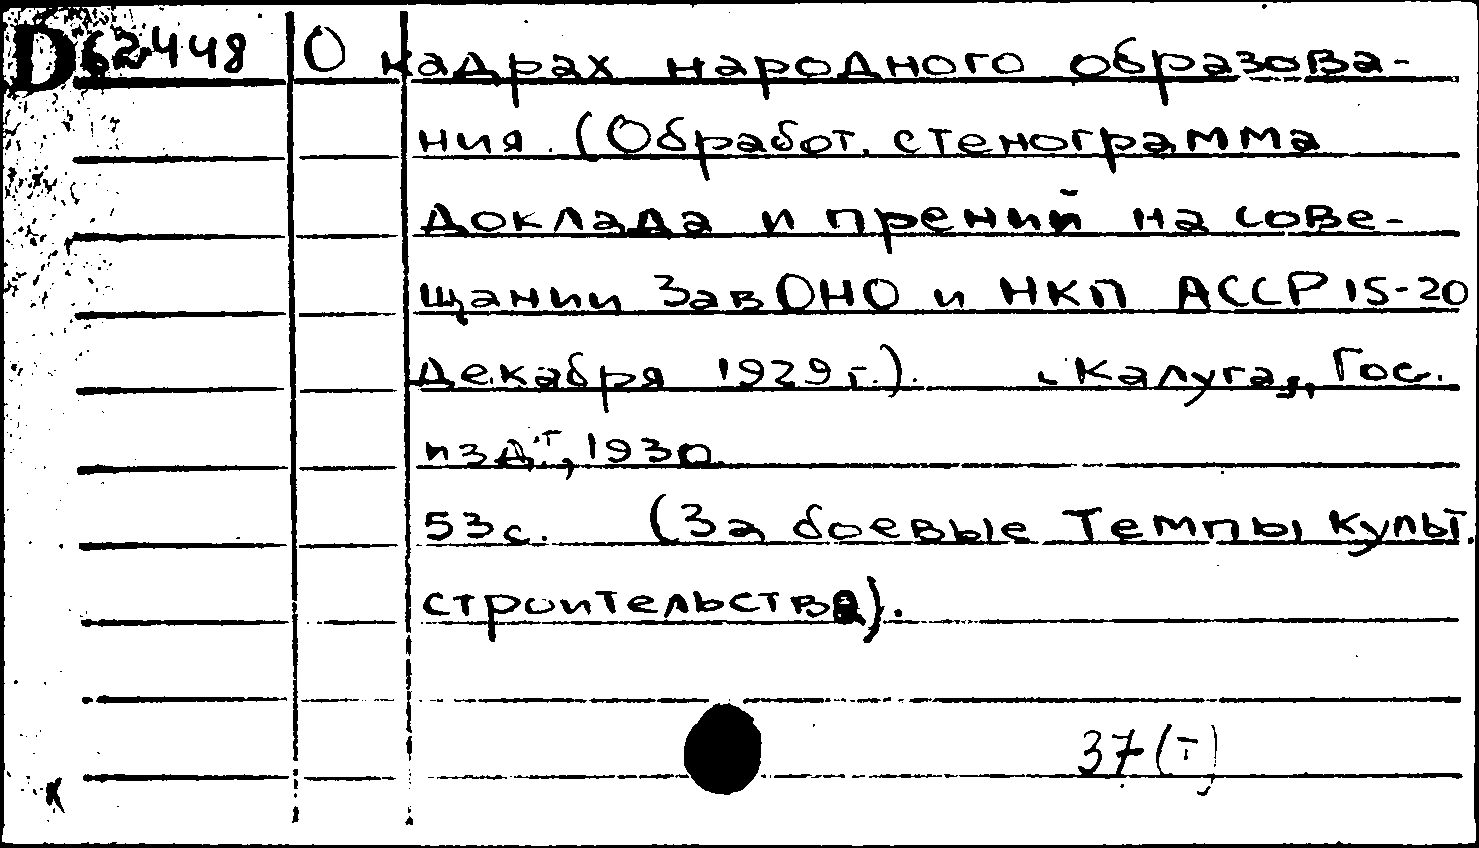 D62448 О кадрах народного образова-
ния. (Обработ. стенограмма
доклада и прений на сове-
щании ЗавОНО и НКП АССР 15-20
декабря 1929 г.). Калуга, Гос.
изд.т, 1930.
53с. (За боевые темпы культ.
строительства).
37(Т)
к